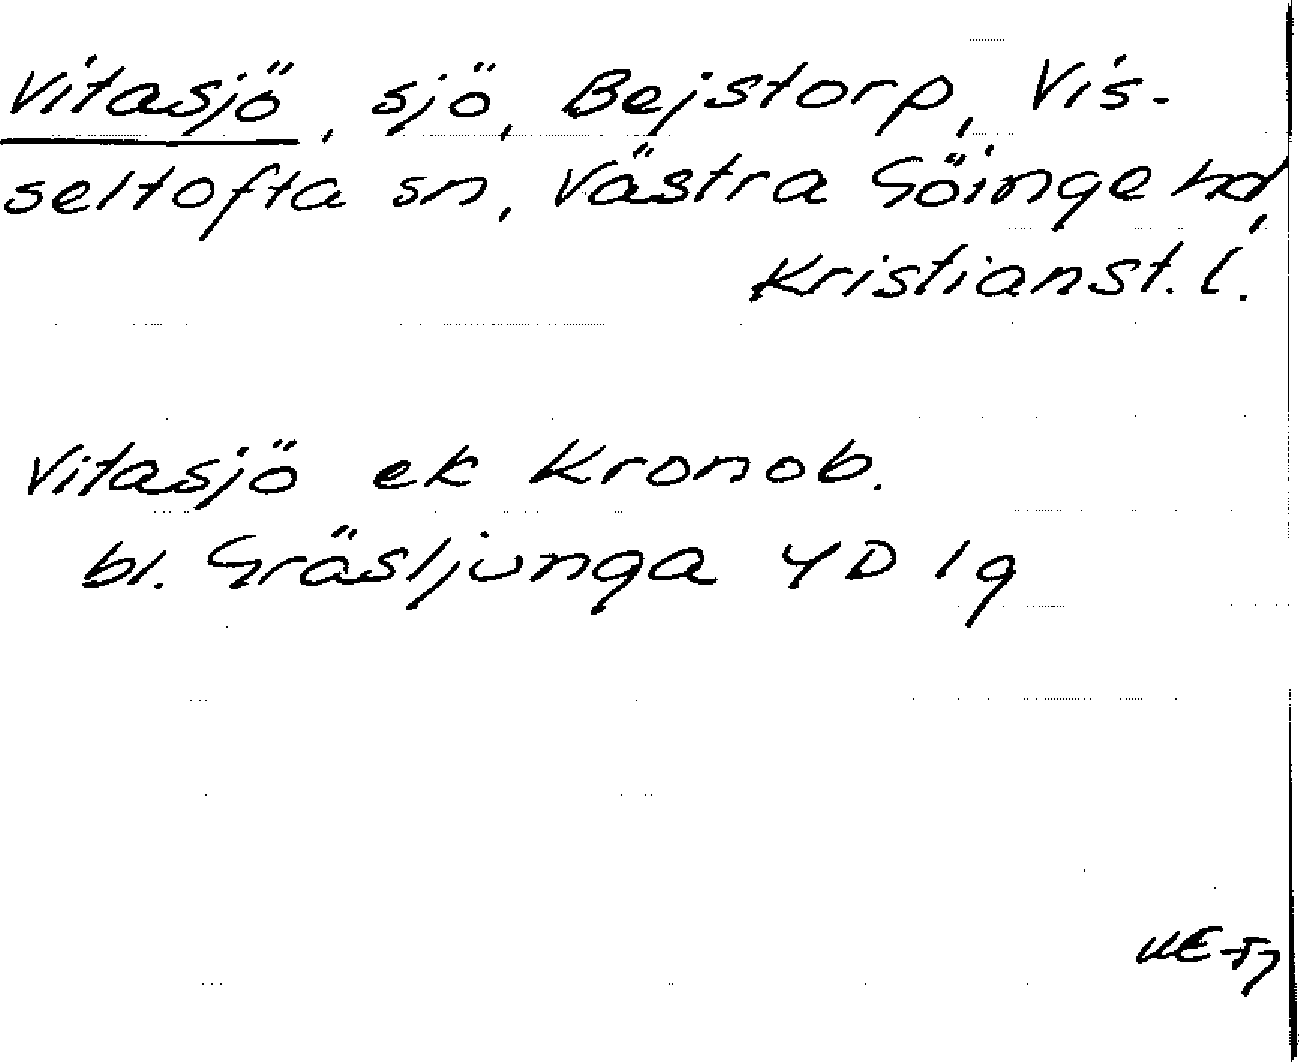 Vitasjö, sjö, Bejstorp, Vis-
seltofta sn, Västra Göinge hd,
Kristianst. l.
Vitasjö ek Kronob.
bl. Gräsljunga 4D 1g